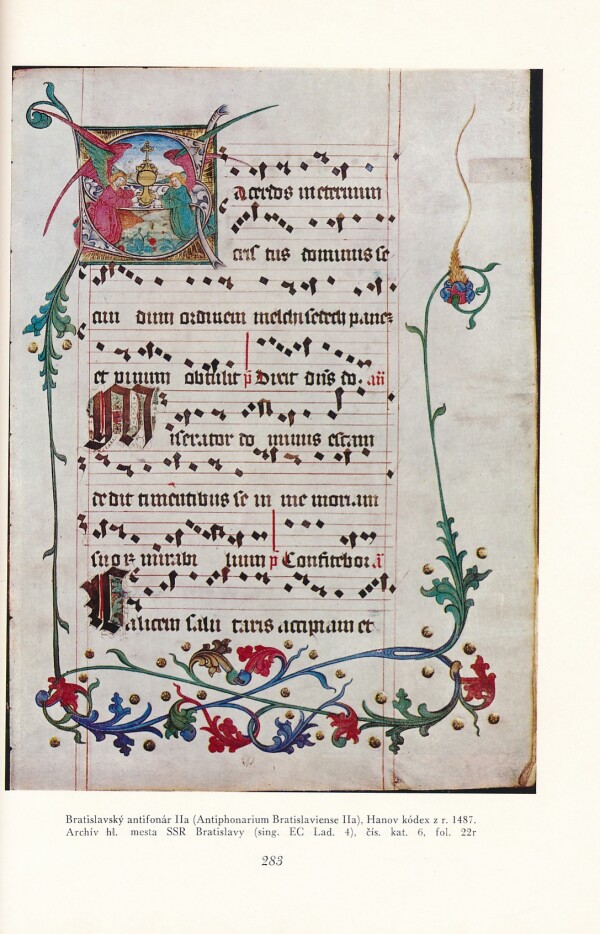 Sacerdos in eternum
cris tus dominus se
cun dum ordinem melchisedech pane
et vinum obtulit p̄ Dixit dn̄s do. an̄
Miserator do minus escam
dedit timentibus se in me moriam
suor mirabi lium p̄ Confitebor a
Calicem salu taris accipiam et
Bratislavský antifonár IIa (Antiphonarium Bratislaviense IIa), Hanov kódex z r. 1487.
Archív hl. mesta SSR Bratislavy (sing. EC Lad. 4), čís. kat. 6, fol. 22r
283